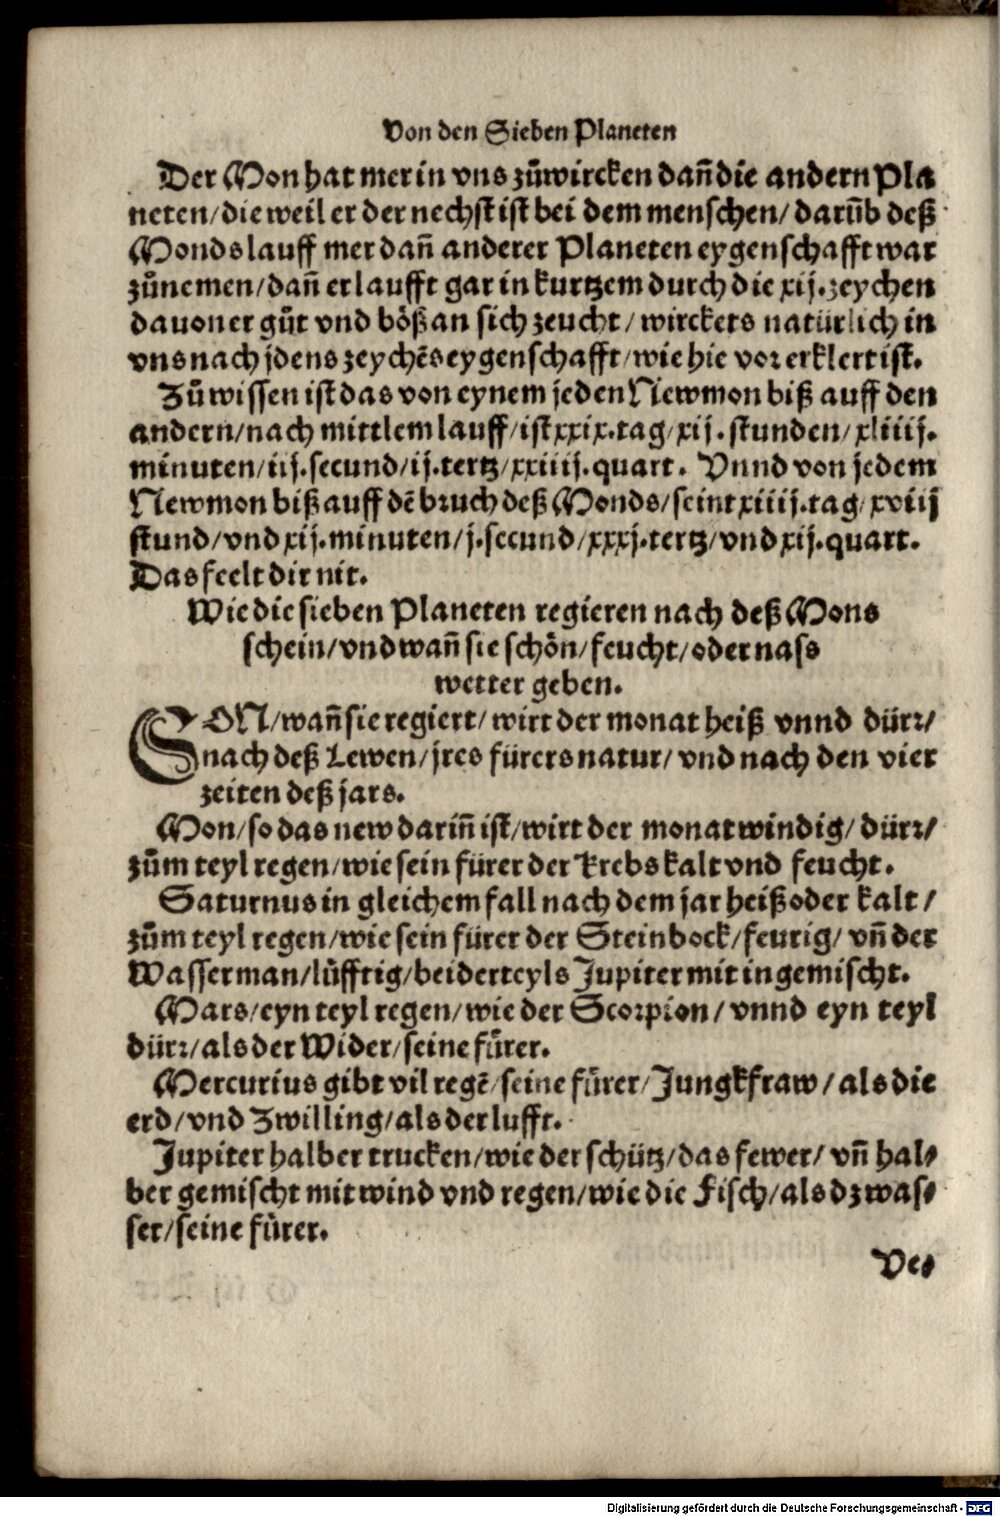 Von den Sieben Planeten
Der Mon hat mer in vns zůwircken dañ die andern Pla
neten/die weil er der nechst ist bei dem menschen/darũb deß
Monds lauff mer dañ anderer Planeten eygenschafft war
zůnemen/dañ er laufft gar in kurtzem durch die xij.zeychen
dauon er gůt vnd böß an sich zeucht/wirckets natürlich in
vns nach jdens zeychẽs eygenschafft/wie hie vor erklert ist.
Zů wissen ist das von eynem jeden Newmon biß auff den
andern/nach mittlem lauff/ist xxix.tag/xij.stunden/xliiij.
minuten/iij.secund/ij.tertz/xxiiij.quart. Vnnd von jedem
Newmon biß auff dẽ bruch deß Monds/seint xiiij.tag/xviij
stund/vnd xij.minuten/j.secund/xxxj.tertz/vnd xij.quart.
Das feelt dir nit.
Wie die sieben Planeten regieren nach deß Mons
schein/vnd wañ sie schön/feucht/oder nass
wetter geben.
SON/wañ sie regiert/wirt der monat heiß vnnd dürr/
nach deß Lewen/jres fürers natur/vnd nach den vier
zeiten deß jars.
Mon/so das new dariñ ist/wirt der monat windig/dürr/
zům teyl regen/wie sein fürer der Krebs kalt vnd feucht.
Saturnus in gleichem fall nach dem jar heiß oder kalt/
zům teyl regen/wie sein fürer der Steinbock/feurig/vñ der
Wasserman/lüfftig/beiderteyls Jupiter mit in gemischt.
Mars/eyn teyl regen/wie der Scorpion/vnnd eyn teyl
dürr/als der Wider/seine fürer.
Mercurius gibt vil regẽ/seine fürer/Jungkfraw/als die
erd/vnd Zwilling/als der lufft.
Jupiter halber trucken/wie der schütz/das fewer/vñ hal⸗
ber gemischt mit wind vnd regen/wie die Fisch/als dz was⸗
ser/seine fürer.
Ve⸗
Digitalisierung gefördert durch die Deutsche Forschungsgemeinschaft - DFG